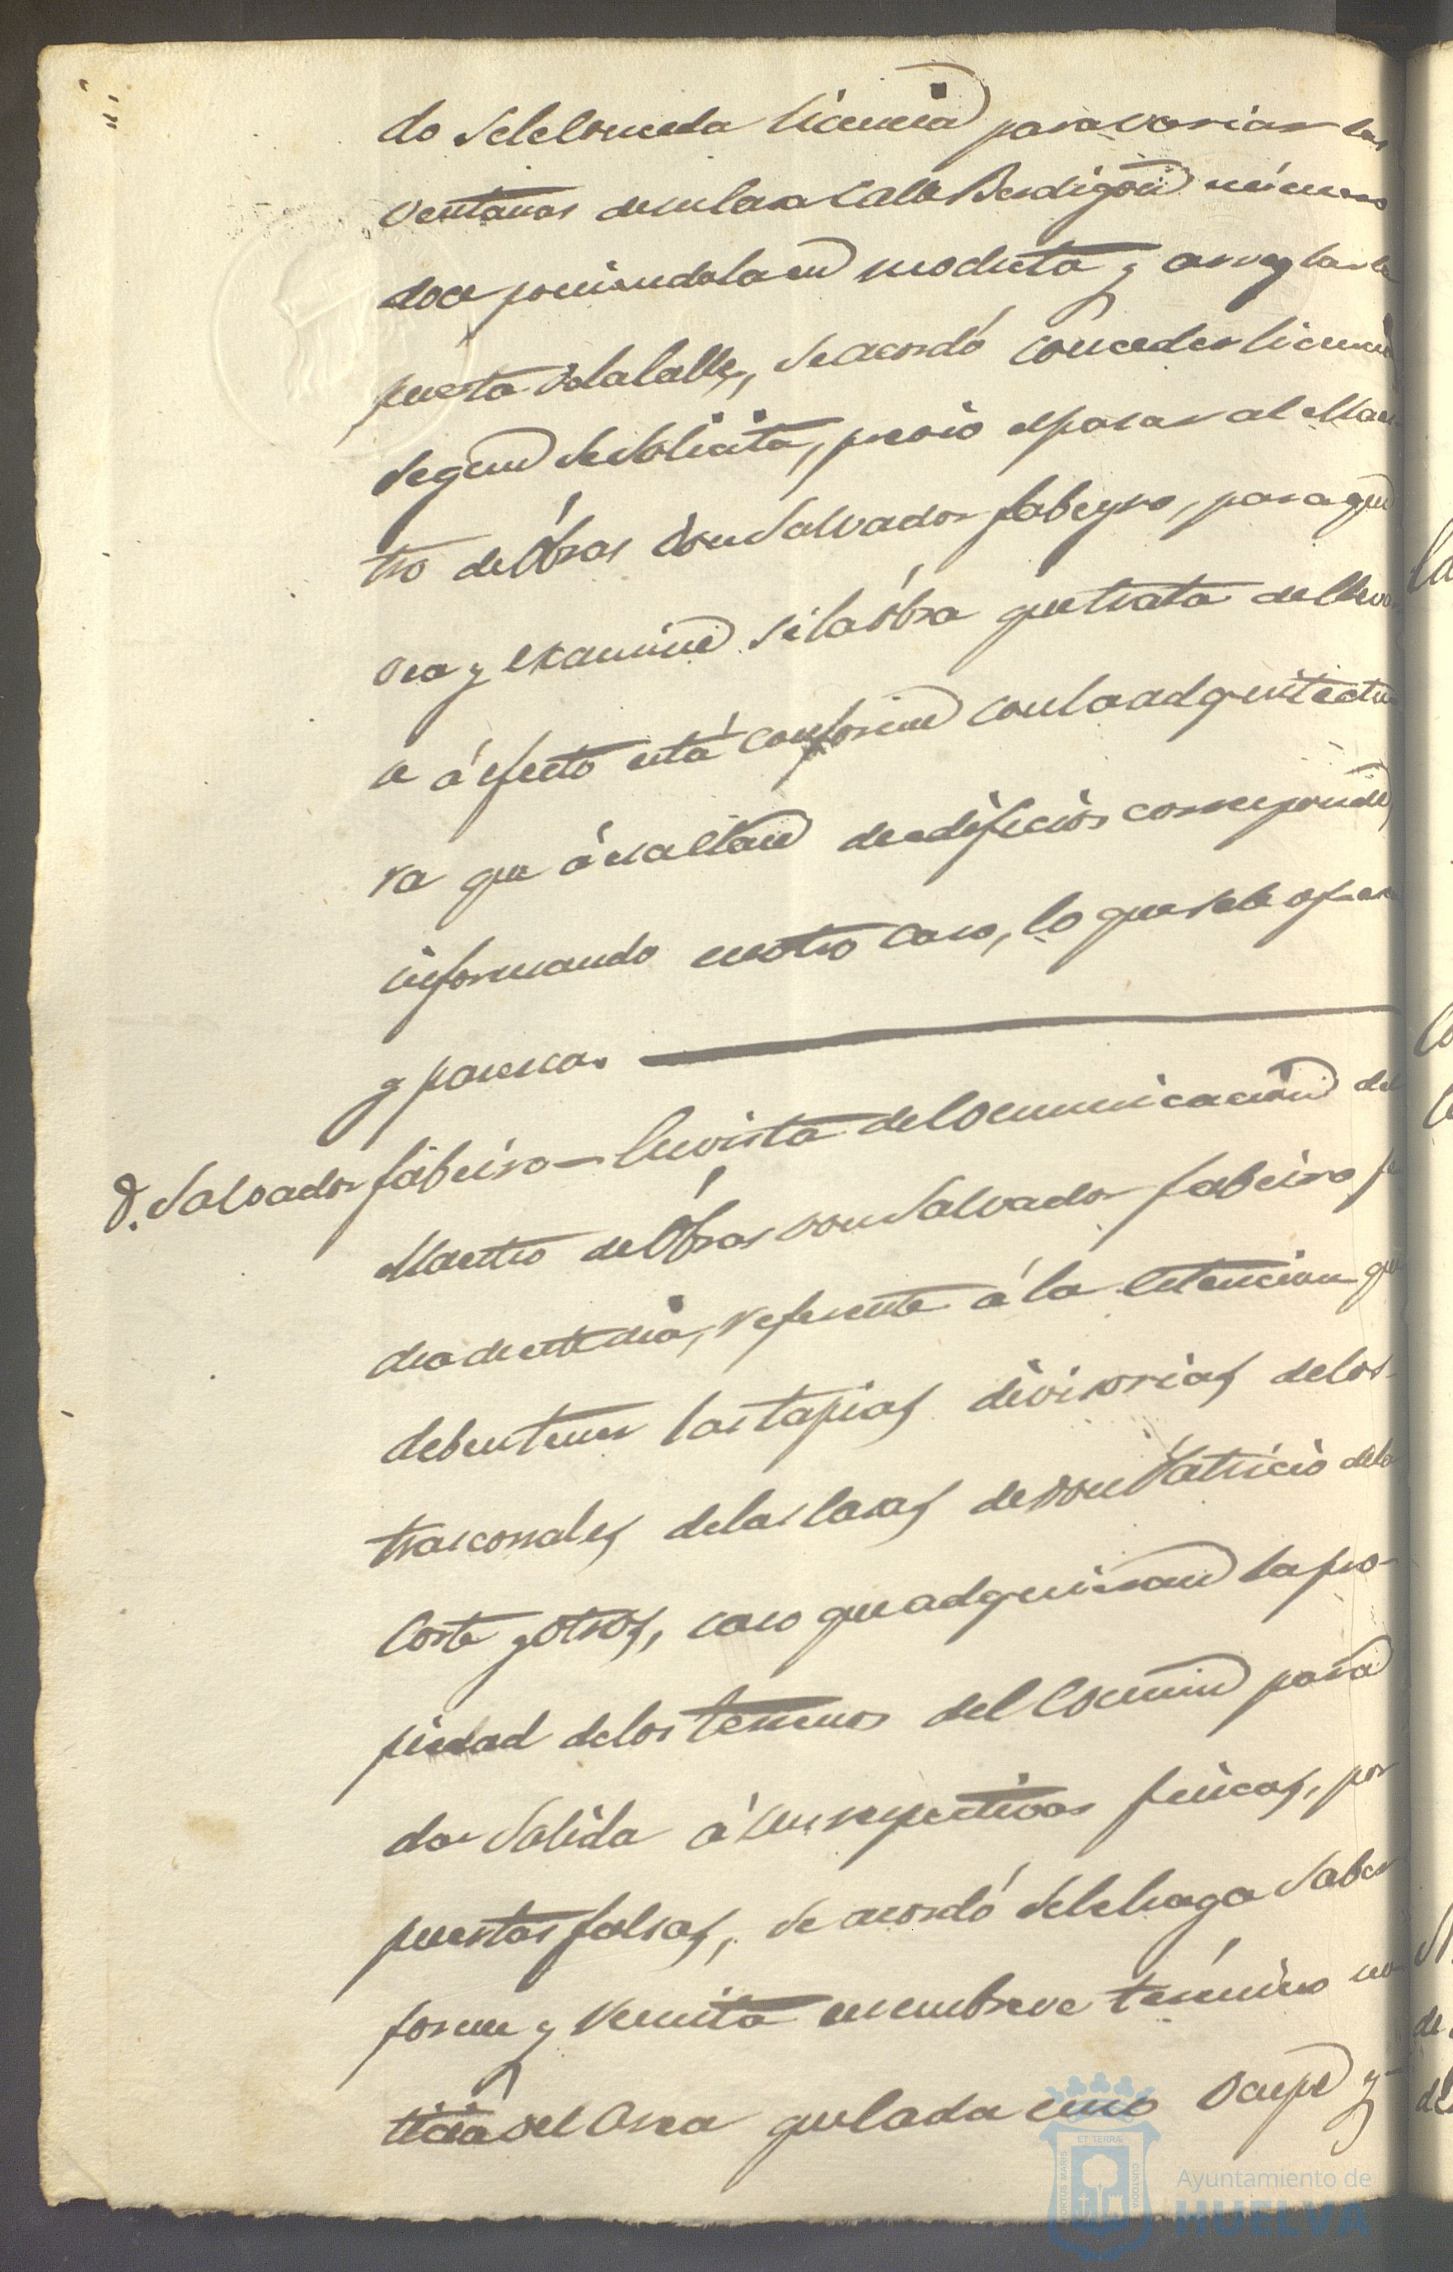 do se le conceda licencia para variar las
ventanas de su Casa Calle Berdigon número
doce poniendola en modesta y arreglar la
puerta de la Calle, se acordó conceder licencia
segun se solicita, previo el pasar al Maes
tro de Obras don Salvador fabeyro, para que
vea y examine si la óbra que trata de lleva
a á efecto está conforme con la adquitectu
ra que á esa clase de edificios corresponde,
informando en otro caso, lo que se le ofresca
y paresca.
D. Salvador fabeiro – En vista de Comunicación del
Maestro de Obras don Salvador fabeiro fe
cha de este dia, referente á la estencion que
deben tener las tapias divisorias de los
trascorrales de las Casas de don Patricio de la
Corte y otros, caso que adquieran la pro-
piedad de los terrenos del Comun para
dar Salida á sus respectivas fincas, por
puertas falsas, se acordó se le haga saber
forme y remita en un breve término no
ticia del Area que cada uno Ocupe y
la
Ayuntamiento de
HUELVA
PORTUS MARIS
ET TERRÆ
CUSTODIA